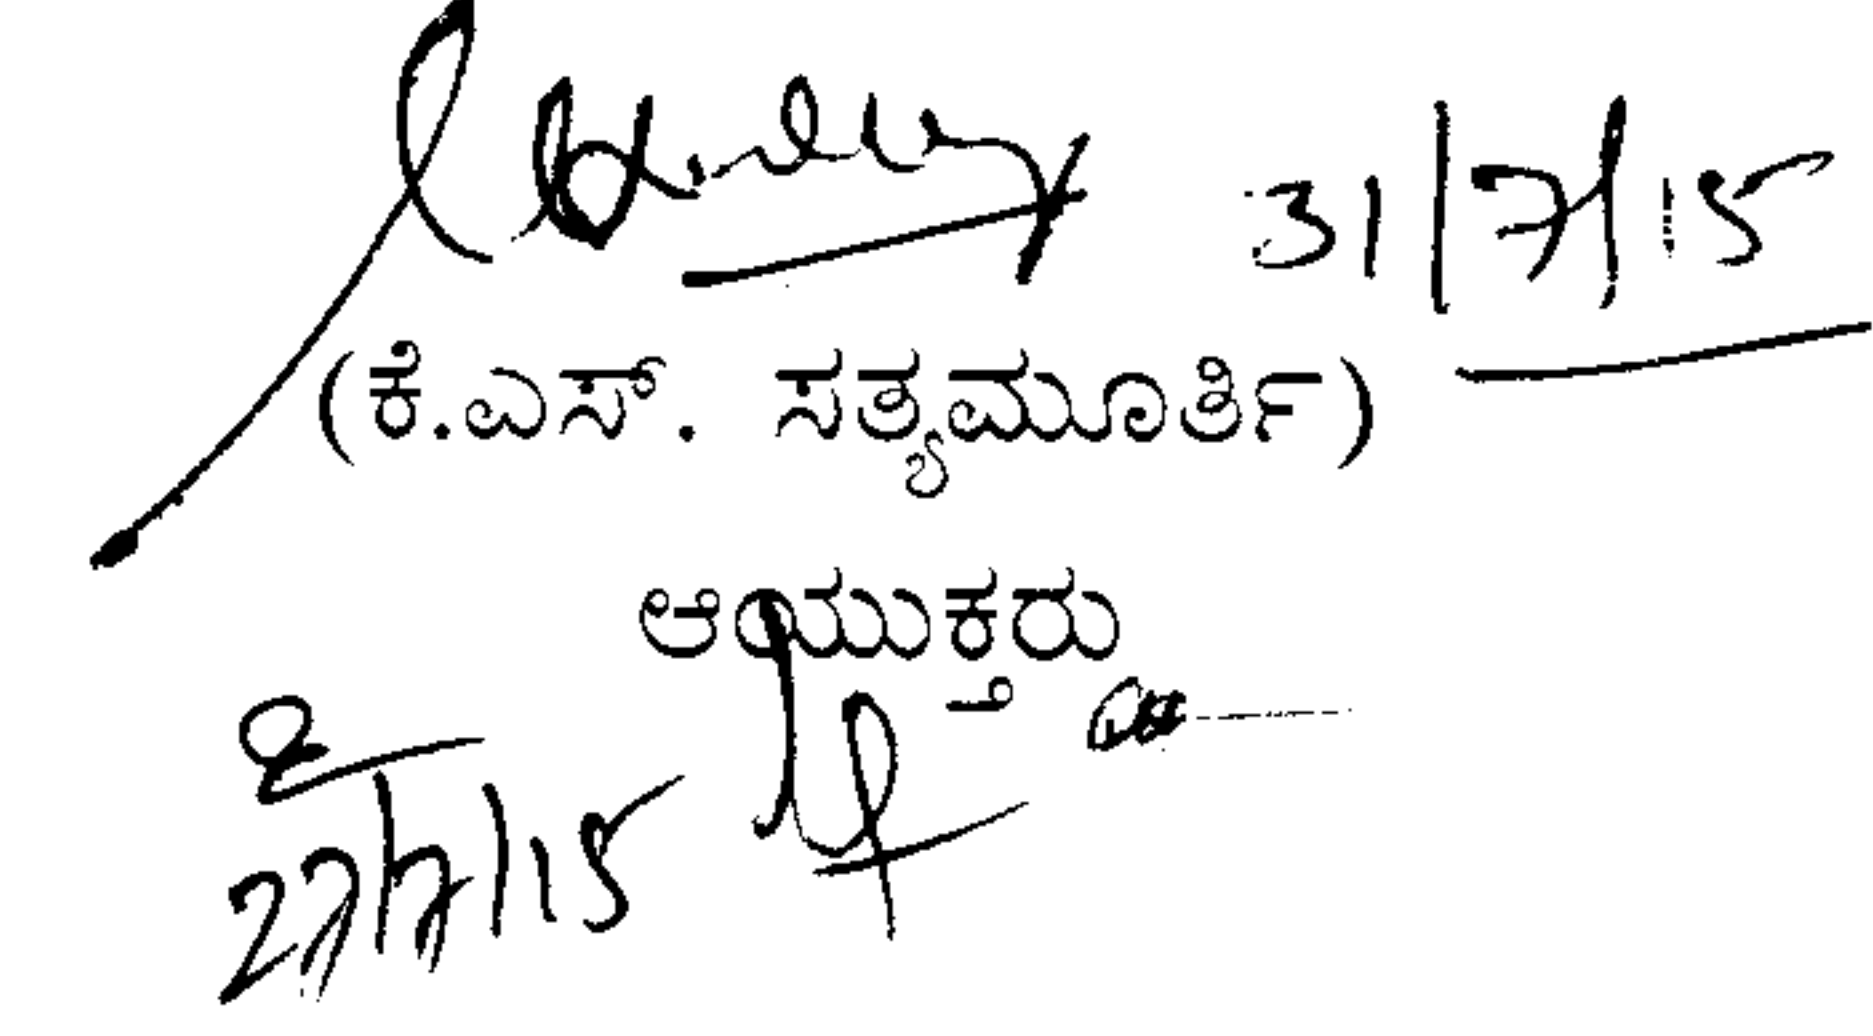 31/7/15
(ಕೆ.ಎಸ್. ಸತ್ಯಮೂರ್ತಿ)
ಆಯುಕ್ತರು
27/7/15